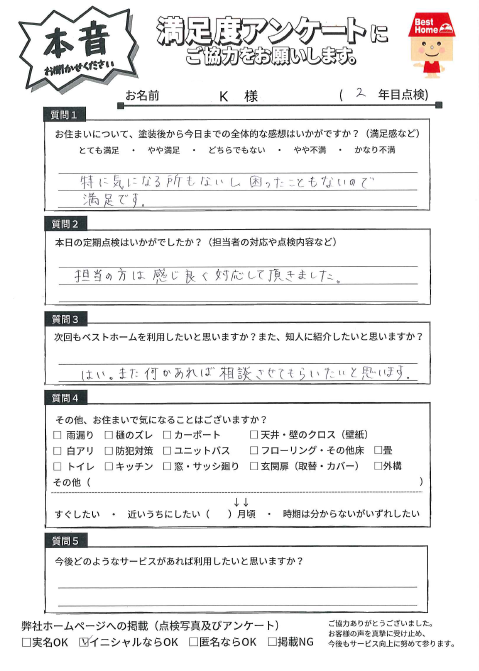 本音
お聞かせください
満足度アンケートに
ご協力をお願いします。
Best
Home
お名前 K 様 ( 2 年目点検)
質問1
お住まいについて、塗装後から今日までの全体的な感想はいかがですか?(満足感など)
とても満足 ・ やや満足 ・ どちらでもない ・ やや不満 ・ かなり不満
特に気になる所もないし、困ったこともないので
満足です。
質問2
本日の定期点検はいかがでしたか?(担当者の対応や点検内容など)
担当の方は感じ良く対応して頂きました。
質問3
次回もベストホームを利用したいと思いますか?また、知人に紹介したいと思いますか?
はい。また何かあれば相談させてもらいたいと思います。
質問4
その他、お住まいで気になることはございますか?
□ 雨漏り □ 樋のズレ □ カーポート □ 天井・壁のクロス(壁紙)
□ 白アリ □ 防犯対策 □ ユニットバス □ フローリング・その他床 □畳
□ トイレ □ キッチン □ 窓・サッシ廻り □ 玄関扉(取替・カバー) □外構
その他( )
↓↓
すぐしたい ・ 近いうちにしたい( )月頃 ・ 時期は分からないがいずれしたい
質問5
今後どのようなサービスがあれば利用したいと思いますか?
弊社ホームページへの掲載(点検写真及びアンケート)
□実名OK ☑イニシャルならOK □匿名ならOK □掲載NG
ご協力ありがとうございました。
お客様の声を真摯に受け止め、
今後もサービス向上に努めて参ります。